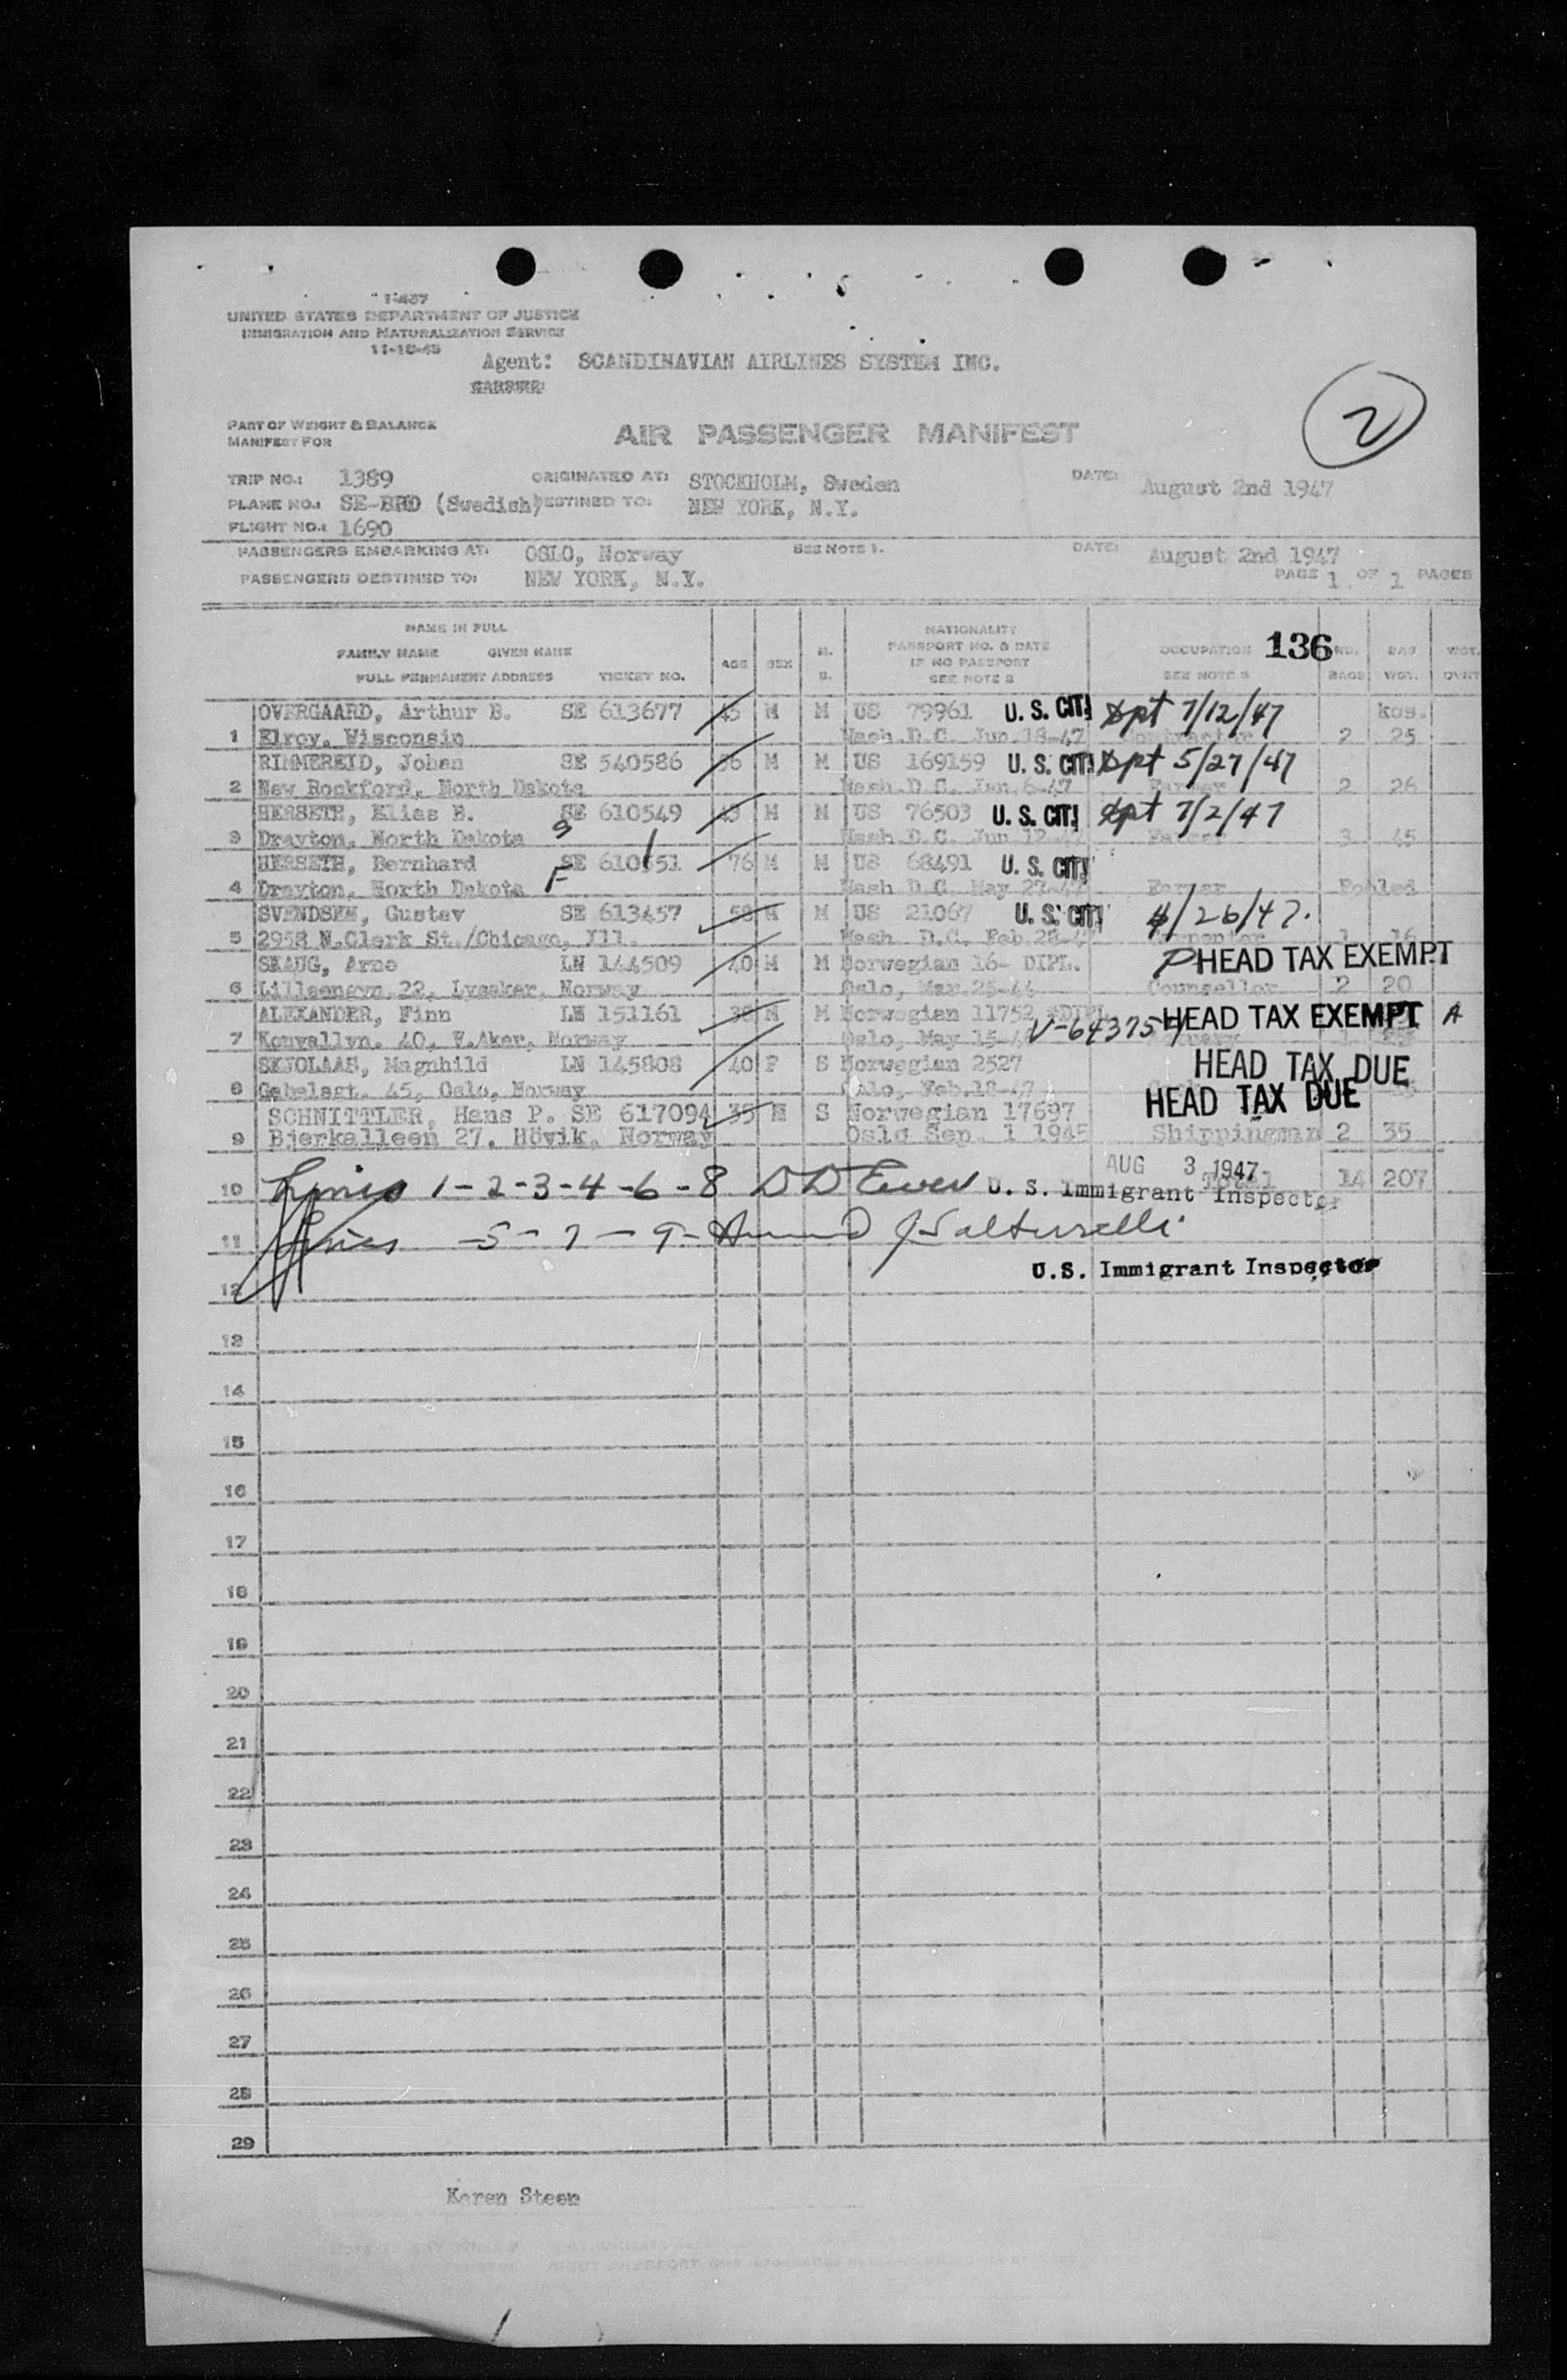 I-467
UNITED STATES DEPARTMENT OF JUSTICE
IMMIGRATION AND NATURALIZATION SERVICE
Agent: SCANDINAVIAN AIRLINES SYSTEM INC.
2
PART OF WEIGHT & BALANCE
MANIFEST FOR
AIR PASSENGER MANIFEST
TRIP NO.: 1389 ORIGINATED AT: STOCKHOLM, Sweden DATE: August 2nd 1947
PLANE NO.: SE-BRD (Swedish) DESTINED TO: NEW YORK, N.Y.
FLIGHT NO.: 1690
PASSENGERS EMBARKING AT: OSLO, Norway SEE NOTE 1. DATE: August 2nd 1947
PASSENGERS DESTINED TO: NEW YORK, N.Y. PAGE 1 OF 1 PAGES
NAME IN FULL
FAMILY NAME GIVEN NAME
FULL PERMANENT ADDRESS TICKET NO. AGE SEX M. S. NATIONALITY PASSPORT NO. & DATE IF NO PASSPORT SEE NOTE 2 OCCUPATION SEE NOTE 3 136 NO. BAGS BAG WGT. WGT.
OVERGAARD, Arthur B. SE 613677 45 M M US 79961 U. S. CIT. dpt 7/12/47 kos.
1 Elroy, Wisconsin Wash.D.C. Jun.18-47 Contractor 2 25
RIMMEREID, Johan SE 540586 56 M M US 169159 U. S. CIT. dpt 5/27/47
2 New Rockford, North Dakota Wash.D.C. Jan.6-47 Farmer 2 26
HERSETH, Elias B. SE 610549 43 M M US 76503 U. S. CIT. dpt 7/2/47
3 Drayton, North Dakota 9 Wash.D.C. Jun 12-47 Farmer 3 45
HERSETH, Bernhard SE 610551 76 M M US 68491 U. S. CIT.
4 Drayton, North Dakota F Wash D.C. May 27-47 Farmer Pooled
SVENDSEN, Gustav SE 613457 58 M M US 21067 U. S. CIT. 4/26/47.
5 2958 N.Clark St./Chicago, Ill. Wash D.C. Feb.28-47 Carpenter 1 16
SKAUG, Arne LN 144509 40 M M Norwegian 16- DIPL. HEAD TAX EXEMPT
6 Lilleengvn.22, Lysaker, Norway Oslo, Mar.25-44 Counsellor 2 20
ALEXANDER, Finn LN 151161 38 M M Norwegian 11752 HEAD TAX EXEMPT A
7 Konvallvn. 40, V.Aker, Norway Oslo, May 15-
SKJOLAAS, Magnhild LN 145808 40 F S Norwegian 2527 HEAD TAX DUE
8 Gabelsgt. 45, Oslo, Norway Oslo, Feb.18-47 HEAD TAX DUE
SCHNITTLER, Hans P. SE 617094 35 M S Norwegian 17697
9 Bjerkalleen 27, Hövik, Norway Oslo Sep. 1 1945 Shippingman 2 35
AUG 3 1947 Total 14 207
10 Lines 1-2-3-4-6-8 U. S. Immigrant Inspector
11 Lines 5-7-9-
U.S. Immigrant Inspector
12
13
14
15
16
17
18
19
20
21
22
23
24
25
26
27
28
29
Karen Steen